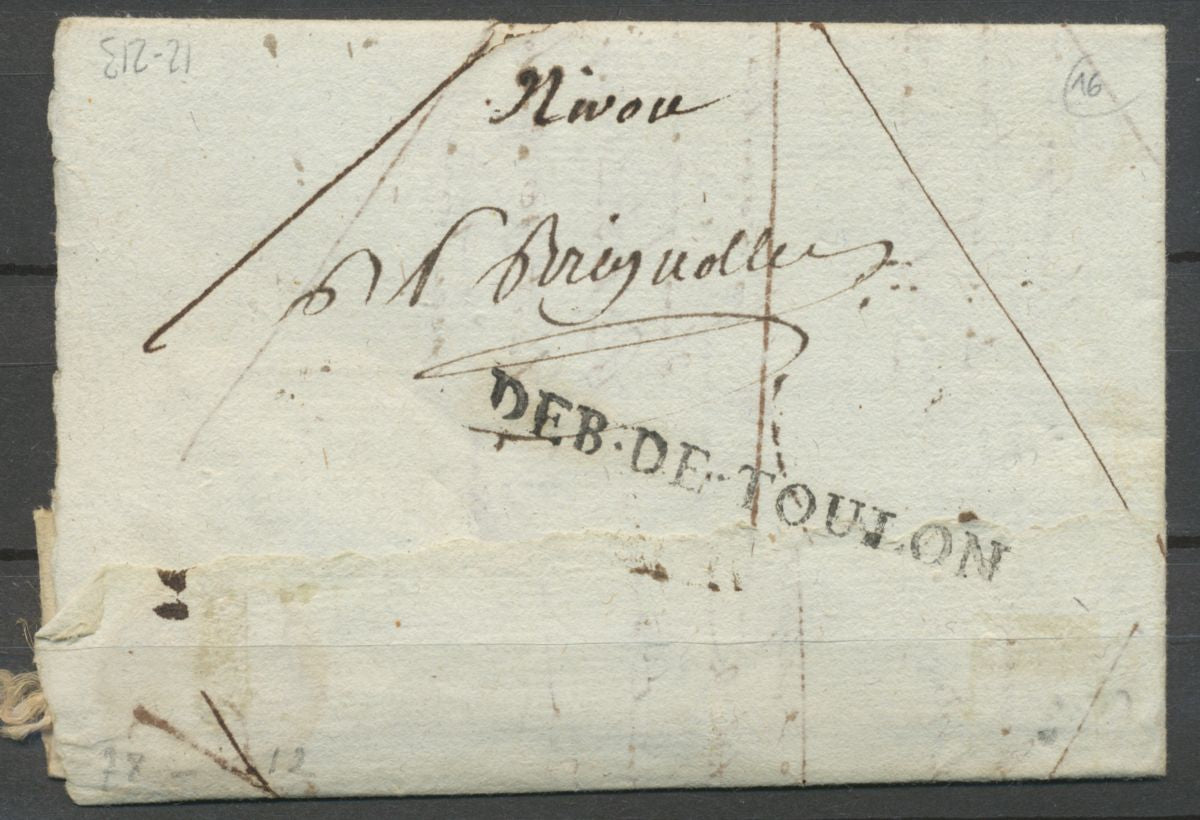 16
Nivou
Brignolles
DEB·DE·TOULON
78 - 12